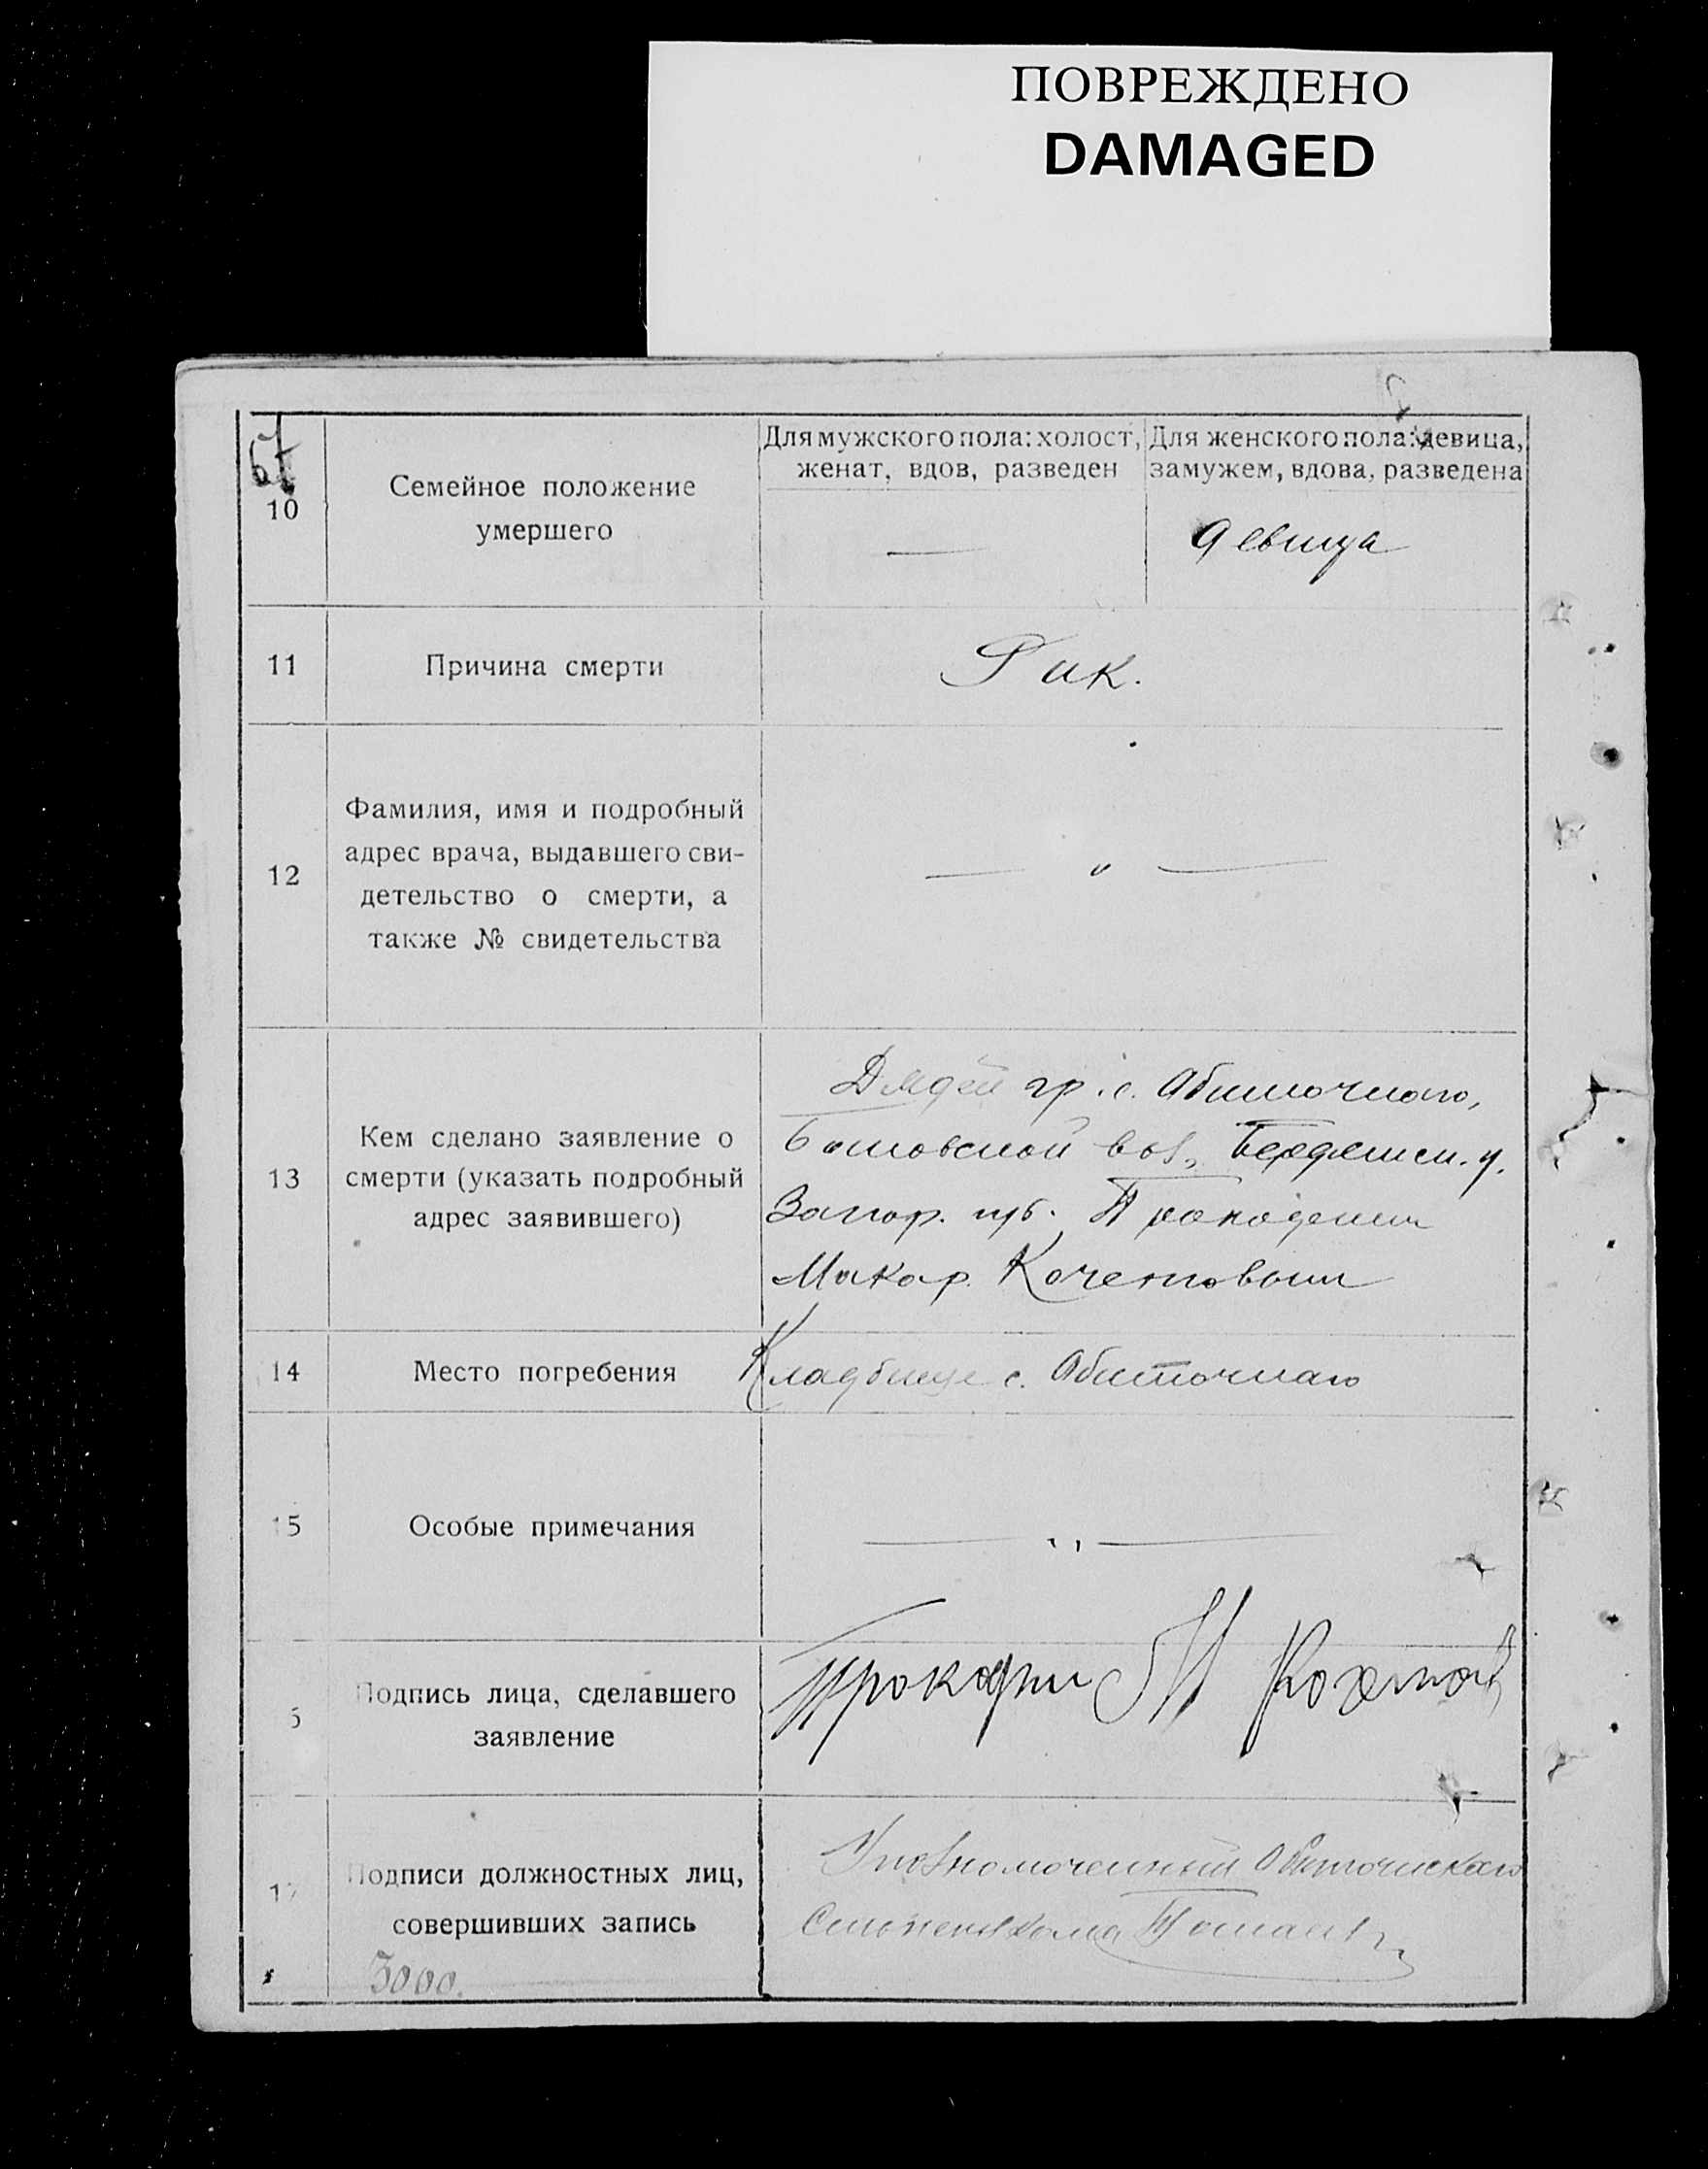 ПОВРЕЖДЕНО
DAMAGED
67
10
Семейное положение
умершего
Для мужского пола: холост,
женат, вдов, разведен
Для женского пола: девица,
замужем, вдова, разведена
—
девица
11
Причина смерти
Рак.
12
Фамилия, имя и подробный
адрес врача, выдавшего сви-
детельство о смерти, а
также № свидетельства
— " —
13
Кем сделано заявление о
смерти (указать подробный
адрес заявившего)
Дядей гр. с. Обиточного,
вол. Бердянск. у.
Запор. губ.
Макар. Кочетовым
14
Место погребения
Кладбище с. Обиточнаго
15
Особые примечания
— " —
6
Подпись лица, сделавшего
заявление
Кочетов
17
Подписи должностных лиц,
совершивших запись
Уполномоченный Обиточнскаго
3000.